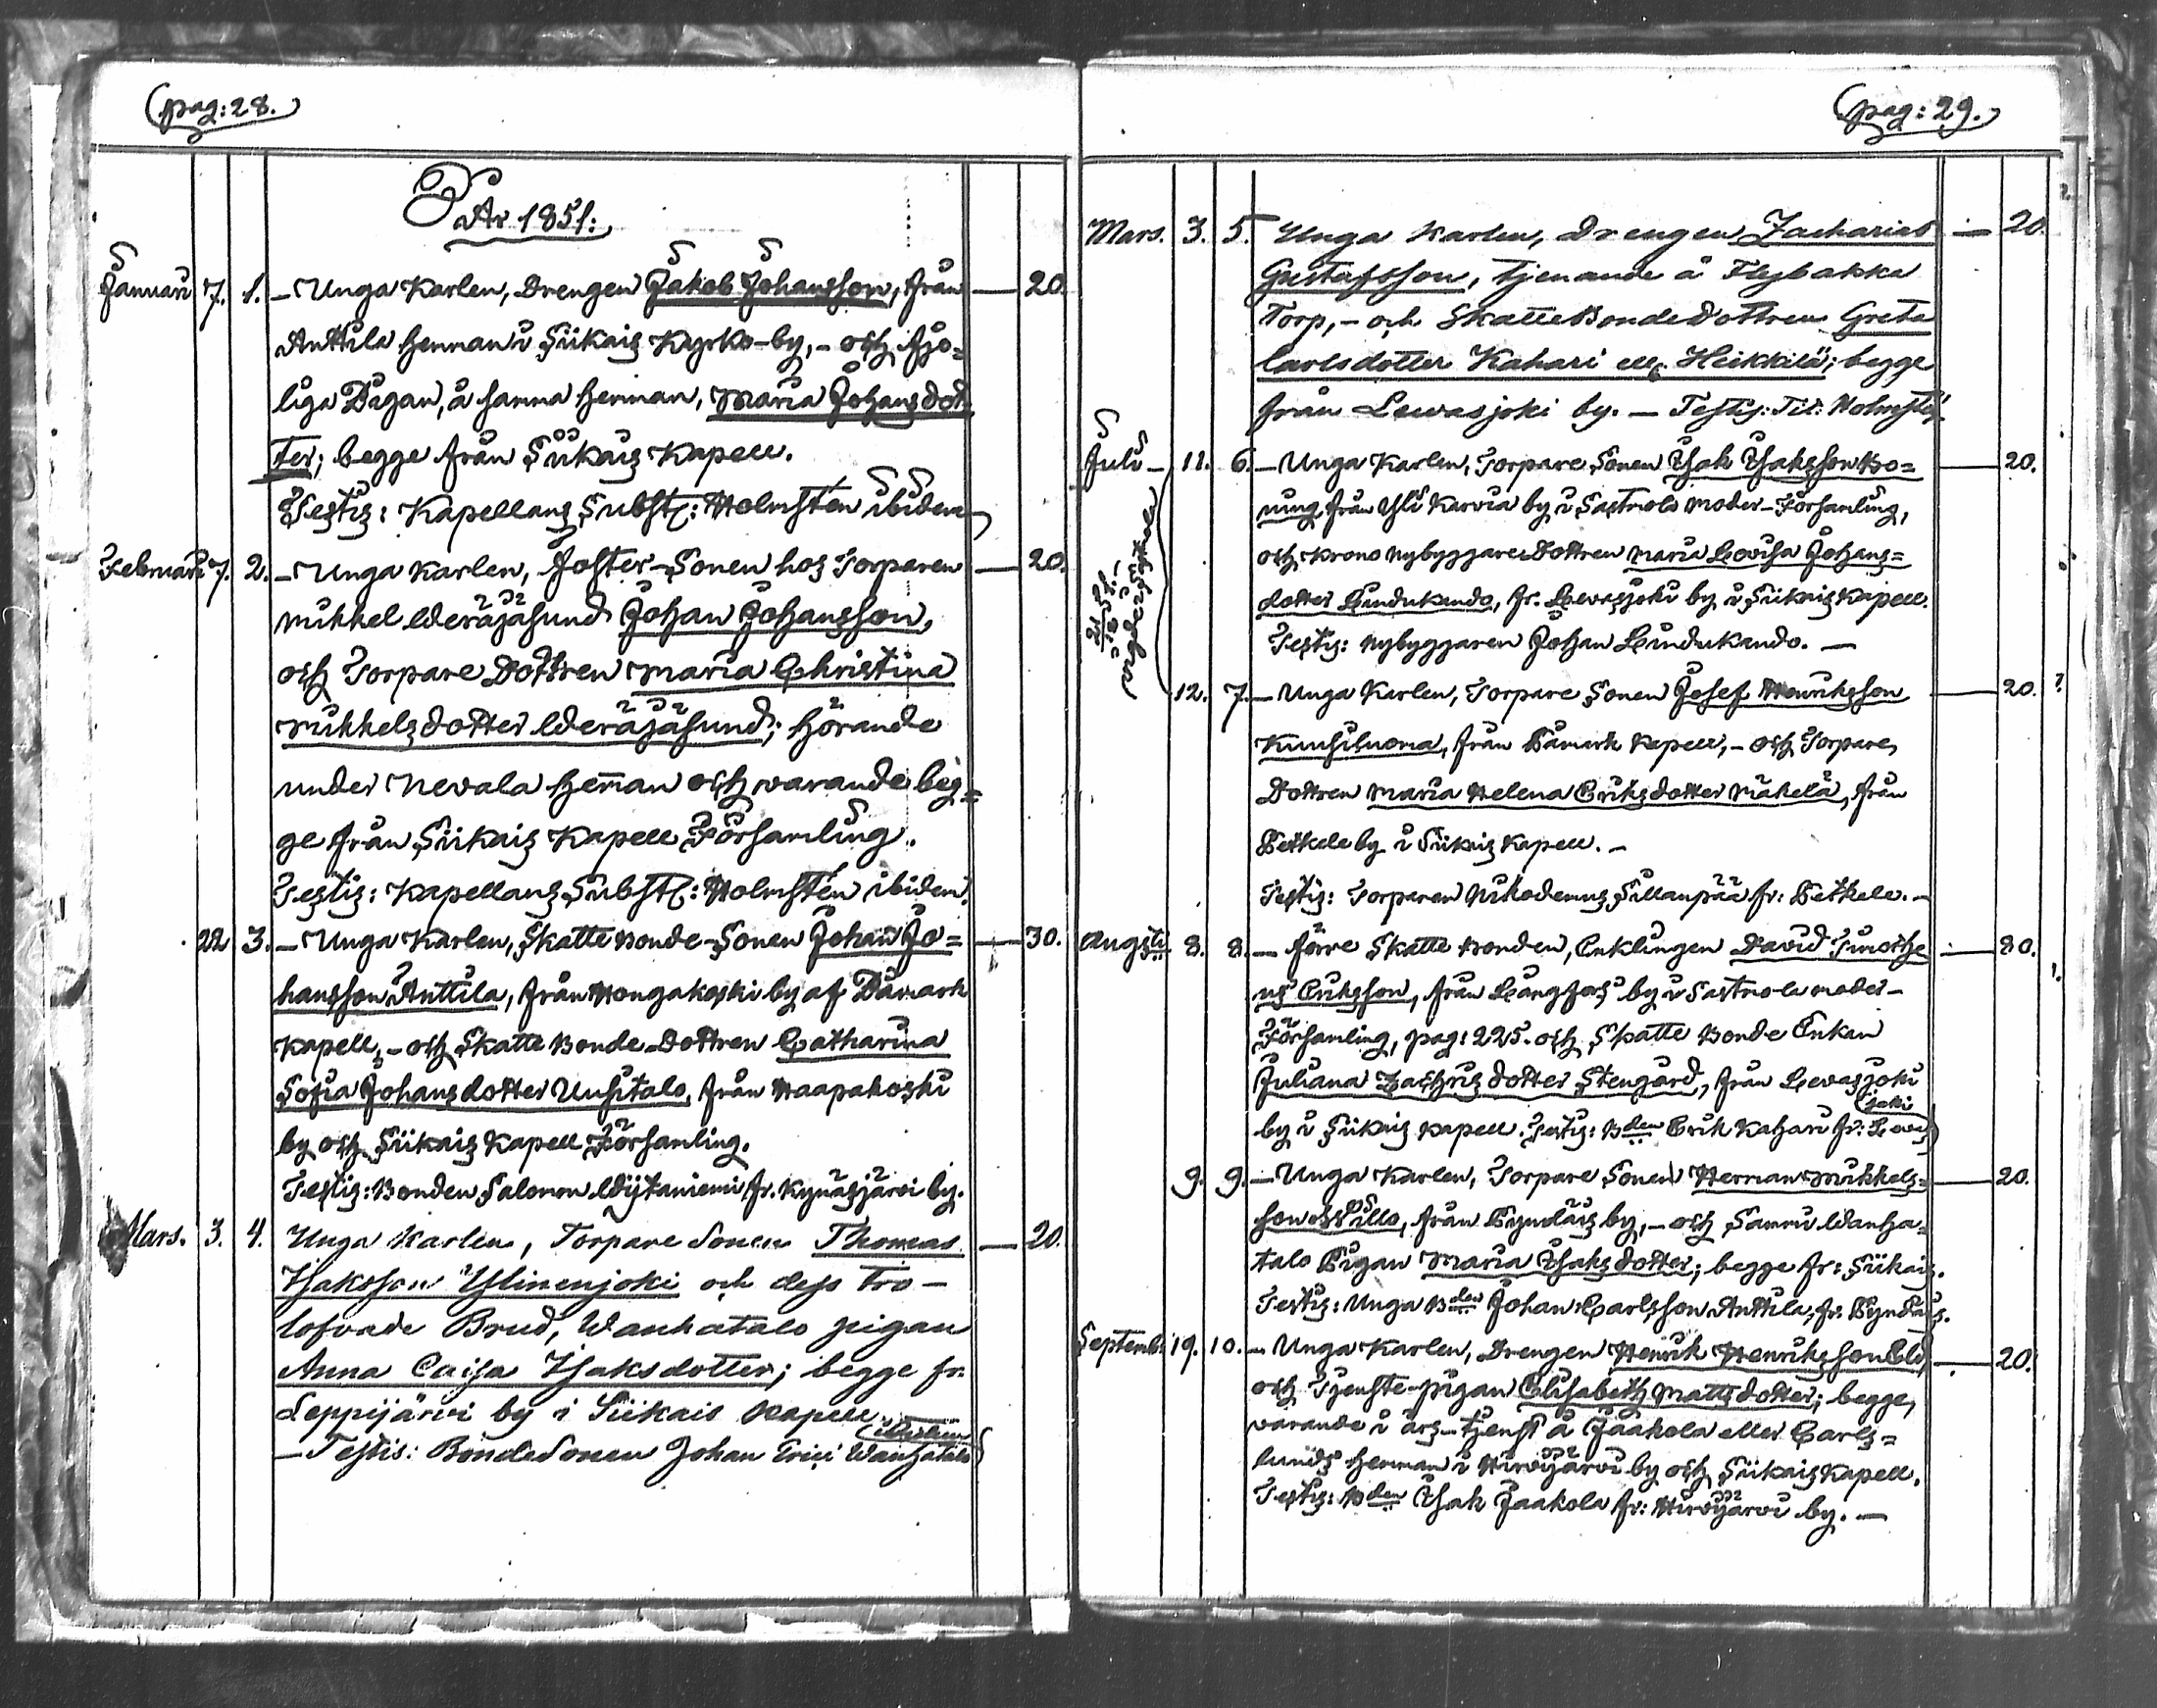 (pag: 28.)
År 1851:
Januari 7. 1. – Unga Karlen, Drengen Jakob Johansson, från — 20.
Anttila Hemman i Siikais Kyrko-by, – och Äjo=
liga Pigan, å samma Hemman, Maria Johansdot=
ter; begge från Siikais Kapell.
Testis: Kapellans Subst: Holmstén ibidem
Februari 7. 2. – Unga Karlen, Foster-Sonen hos Torparen — 20.
Mikkel Weräjäsund Johan Johansson,
och Torpare Dottren Maria Christina
Mikkelsdotter Weräjäsund; hörande
under Nevala Heman och varande beg=
ge från Siikais Kapell Församling.
Testis: Kapellans Subst: Holmstén ibidem.
22 3. – Unga Karlen, Skatte Bonde-Sonen Johan Jo= — 30.
hansson Anttila, från Hongakoski by af Påmark
Kapell, – och Skatte Bonde Dottren Catharina
Sofia Johansdotter Uusitalo, från Haapakoski
by och Siikais Kapell Församling.
Testis: Bonden Salomon Wijtaniemi fr. Kynäsjärvi by.
Mars. 3. 4. Unga Karlen, Torpare Sonen Thomas — 20.
Isaksson Ylinenjoki och dess tro–
lofvade Brud, Wanhatalo pigan
Anna Caisa Isaksdotter; begge fr.
Leppijärvi by i Siikais Kapell.
– Testis: BondeSonen Johan Erici Wanhatalo ibidem
(pag: 29.)
Mars. 3. 5. Unga Karlen, Drengen Zacharias — 20.
Gustafsson, tjenande å Flybakka
Torp, – och SkatteBondeDottren Greta
Carlsdotter Kahari ell. Heikkilä; begge
från Lewasjoki by. – Testis: Tit: Holmstén
Juli – 11. 6. – Unga Karlen, Torpare Sonen Isak Isaksson Ko= — 20.
nung från Yli Karvia by i Sastmola Moder-Församling,
och Krono Nybyggare Dottren Maria Lovisa Johans=
dotter Lindukando, fr. Lewasjoki by i Siikais Kapell.
Testis: Nybyggaren Johan Lindukando. –
12. 7. – Unga Karlen, Torpare Sonen Josef Henriksson — 20.
Kuusiluoma, från Påmark Kapell, – och Torpare
Dottren Maria Helena Eriksdotter Mäkelä, från
Petkele by i Siikais Kapell. –
Testis: Torparen Nikodemus Sillanpää fr: Petkele. –
Augsti 8. 8. – Förre Skatte Bonden, Enklingen David Timothe — 80.
us Eriksson, från Långfors by i Sastmola moder–
Församling, pag: 225. och Skatte Bonde Enkan
Juliana Zachrisdotter Stengård, från Lewasjoki
by i Siikais Kapell. Testis: Bden Erik Kahari fr: Lewasjoki
9. 9. – Unga Karlen, Torpare Sonen Herman Mikkels= — 20.
son från Pyndäis by, – och Sammi Wanha=
talo Pigan Maria Isaksdotter; begge fr: Siikais.
Testis: Unga Bden Johan Carlsson Anttila, fr. Pyndäis.
Septemb: 19. 10. – Unga Karlen, Drengen Henrik Henriksson — 20.
och Tjenste-pigan Elisabeth Mattsdotter; begge,
varande i års-tjenst å Jaakola eller Carls=
lunds Hemman i Hirvijärvi by och Siikais Kapell.
Testis: Bden Isak Jaakola fr: Hirvijärvi by. –